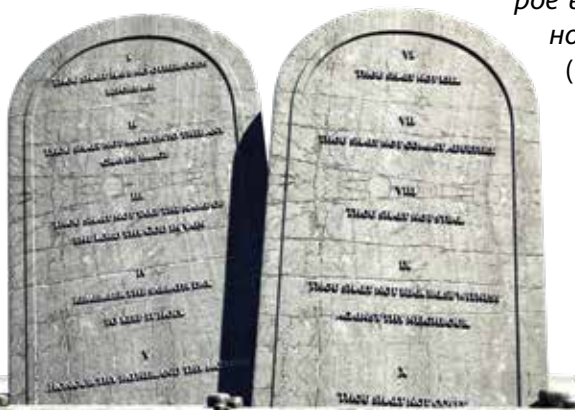 I
THOU SHALT HAVE NO OTHER GODS
BEFORE ME
II
THOU SHALT NOT MAKE UNTO THEE ANY
GRAVEN IMAGE
III
THOU SHALT NOT TAKE THE NAME OF
THE LORD THY GOD IN VAIN
IV
REMEMBER THE SABBATH DAY,
TO KEEP IT HOLY.
V
HONOUR THY FATHER AND THY MOTHER
VI
THOU SHALT NOT KILL
VII
THOU SHALT NOT COMMIT ADULTERY
VIII
THOU SHALT NOT STEAL
IX
THOU SHALT NOT BEAR FALSE WITNESS
AGAINST THY NEIGHBOUR
X
THOU SHALT NOT COVET
рое
но
(